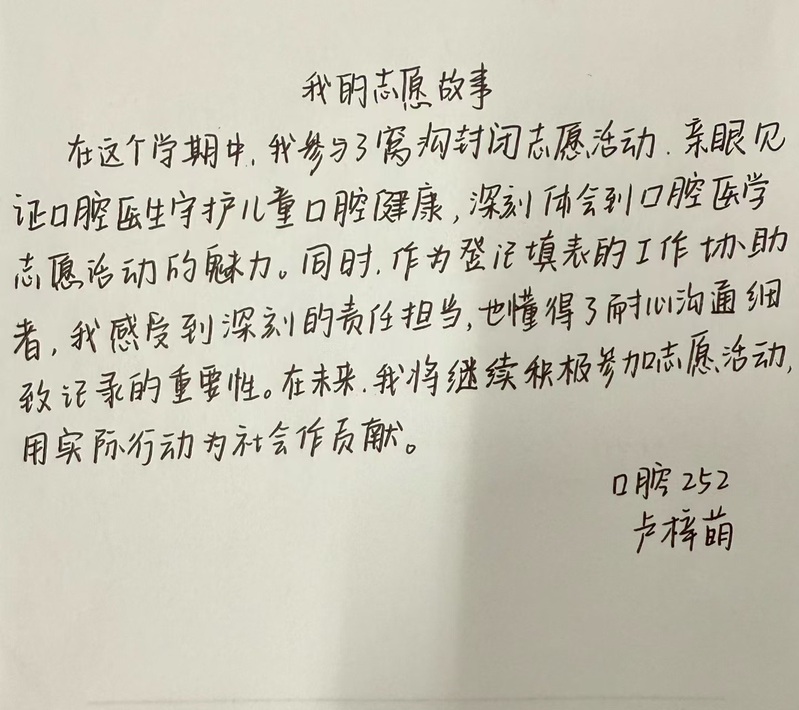 我的志愿故事
在这个学期中,我参与了窝沟封闭志愿活动.亲眼见
证口腔医生守护儿童口腔健康,深刻体会到口腔医学
志愿活动的魅力。同时.作为登记填表的工作协助
者,我感受到深刻的责任担当,也懂得了耐心沟通细
致记录的重要性。在未来.我将继续积极参加志愿活动,
用实际行动为社会作贡献。
口腔252
卢梓萌